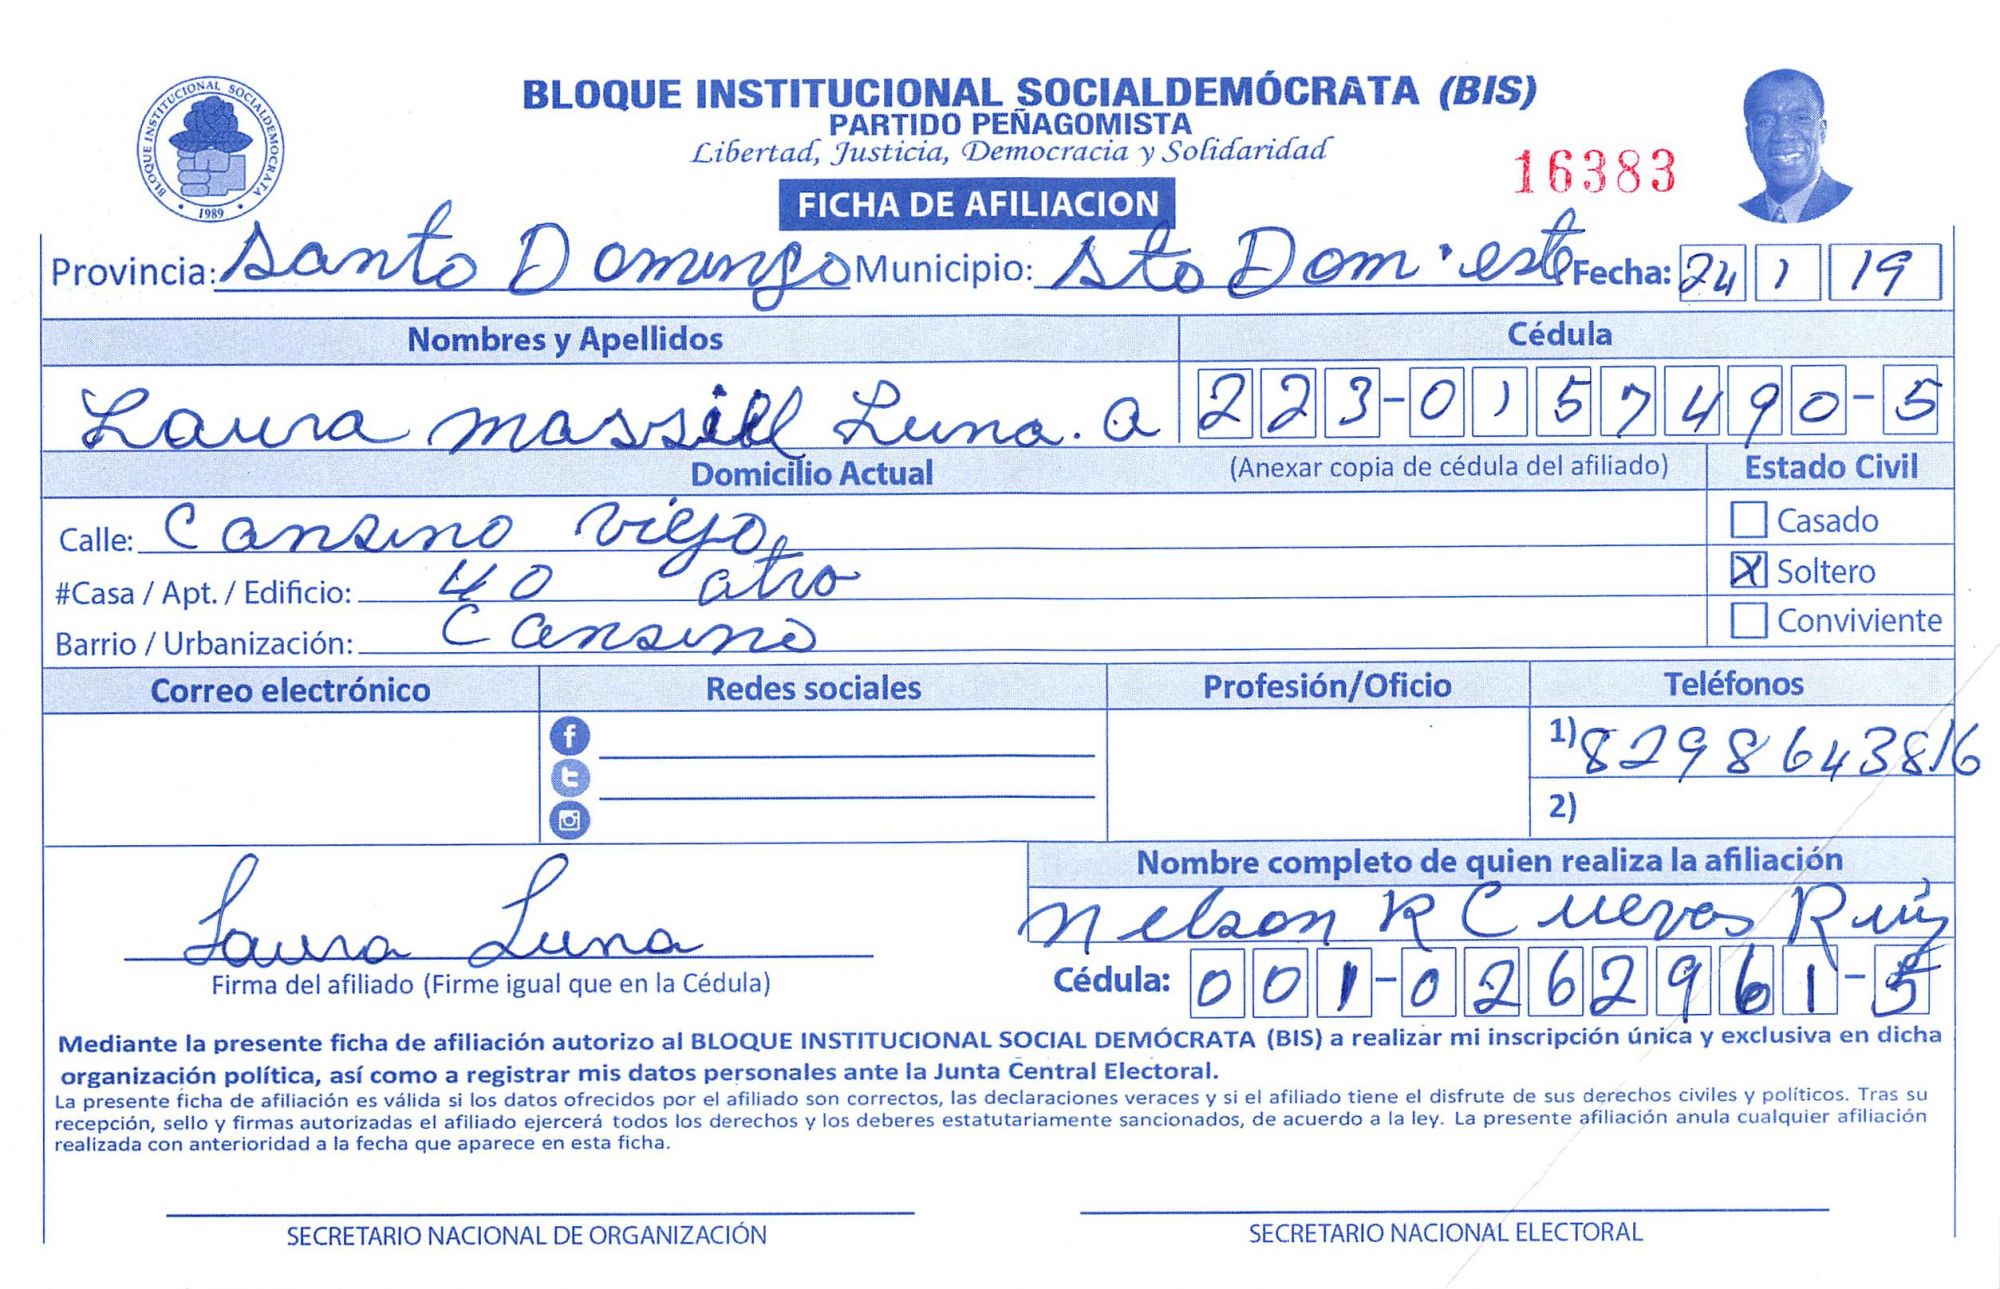 BLOQUE INSTITUCIONAL SOCIALDEMOCRATA
1989
BLOQUE INSTITUCIONAL SOCIALDEMÓCRATA (BIS)
PARTIDO PEÑAGOMISTA
Libertad, Justicia, Democracia y Solidaridad
16383
FICHA DE AFILIACION
Provincia: Santo Domingo Municipio: Sto Dom. este Fecha: 24 1 19
Nombres y Apellidos Cédula
Laura massiell Luna. a 223-0157490-5
Domicilio Actual (Anexar copia de cédula del afiliado) Estado Civil
Calle: Cansino viejo Casado
#Casa / Apt. / Edificio: 40 atro X Soltero
Barrio / Urbanización: Cansino Conviviente
Correo electrónico Redes sociales Profesión/Oficio Teléfonos
1) 8298643816
2)
Nombre completo de quien realiza la afiliación
Laura Luna Nelson R Cuevas Ruiz
Firma del afiliado (Firme igual que en la Cédula) Cédula: 001-0262961-5
Mediante la presente ficha de afiliación autorizo al BLOQUE INSTITUCIONAL SOCIAL DEMÓCRATA (BIS) a realizar mi inscripción única y exclusiva en dicha
organización política, así como a registrar mis datos personales ante la Junta Central Electoral.
La presente ficha de afiliación es válida si los datos ofrecidos por el afiliado son correctos, las declaraciones veraces y si el afiliado tiene el disfrute de sus derechos civiles y políticos. Tras su
recepción, sello y firmas autorizadas el afiliado ejercerá todos los derechos y los deberes estatutariamente sancionados, de acuerdo a la ley. La presente afiliación anula cualquier afiliación
realizada con anterioridad a la fecha que aparece en esta ficha.
SECRETARIO NACIONAL DE ORGANIZACIÓN SECRETARIO NACIONAL ELECTORAL